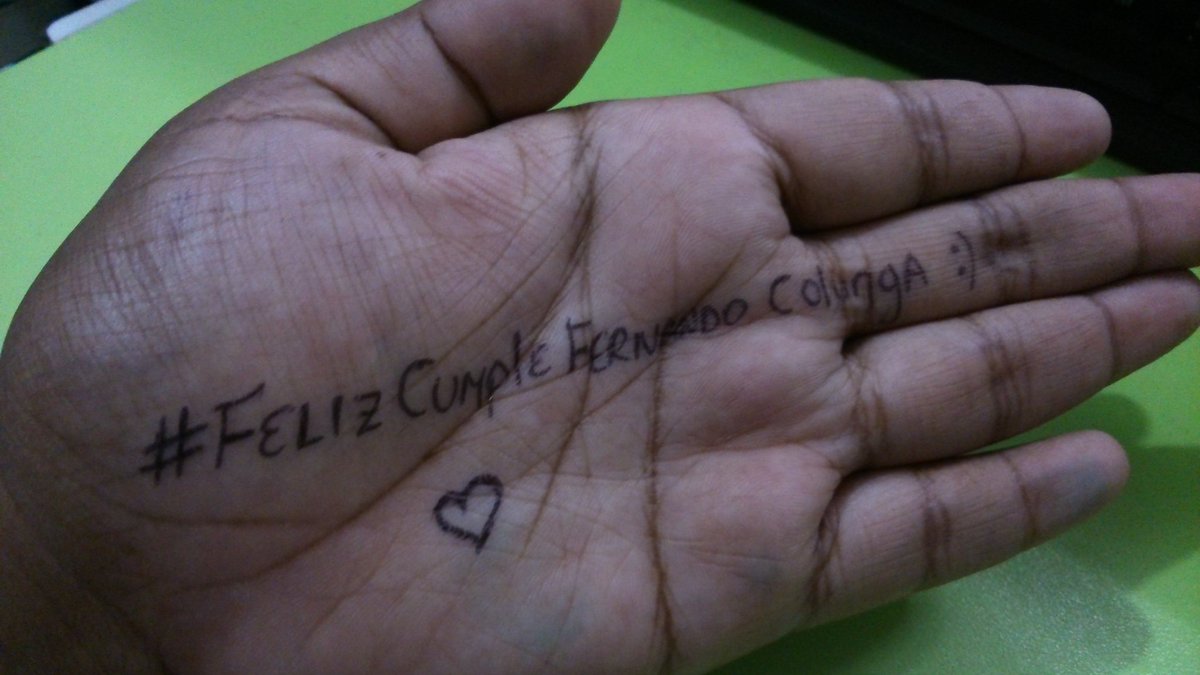 #FELIZ CUMPLE FERNANDO COLUNGA :)